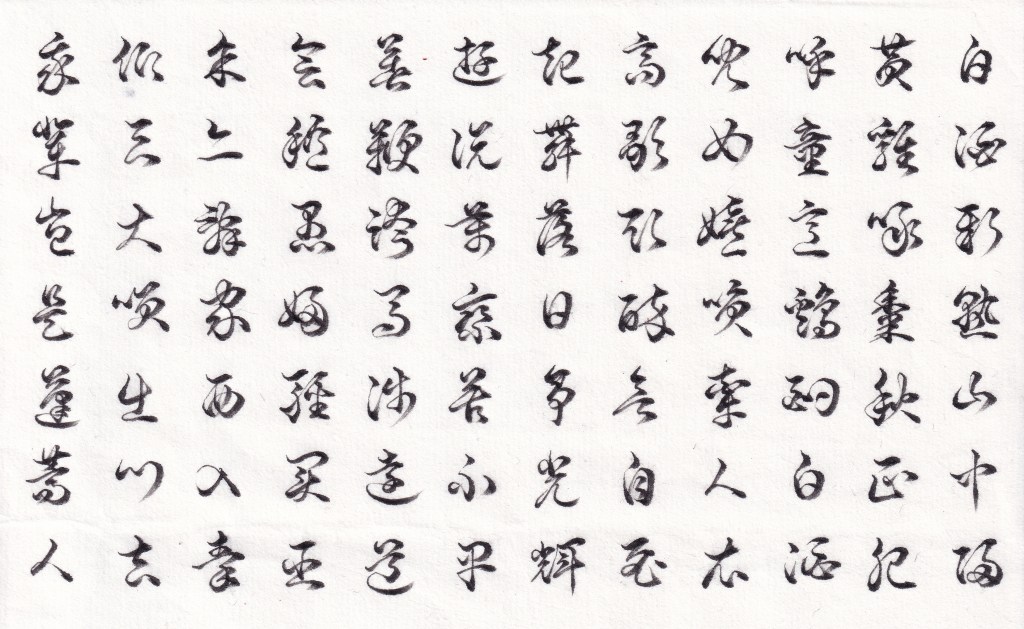 白酒新熟山中歸
黃雞啄黍秋正肥
呼童烹雞酌白酒
兒女嬉笑牽人衣
高歌取醉欲自慰
起舞落日爭光輝
遊說萬乘苦不早
著鞭跨馬涉遠道
會稽愚婦輕買臣
余亦辭家西入秦
仰天大笑出門去
我輩豈是蓬蒿人